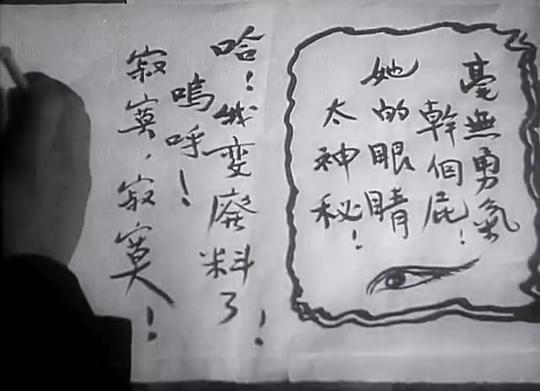 毫無勇氣
幹個屁！
她的眼睛
太神秘！
哈！我变廢料了！
嗚呼！
寂寞，寂寞！